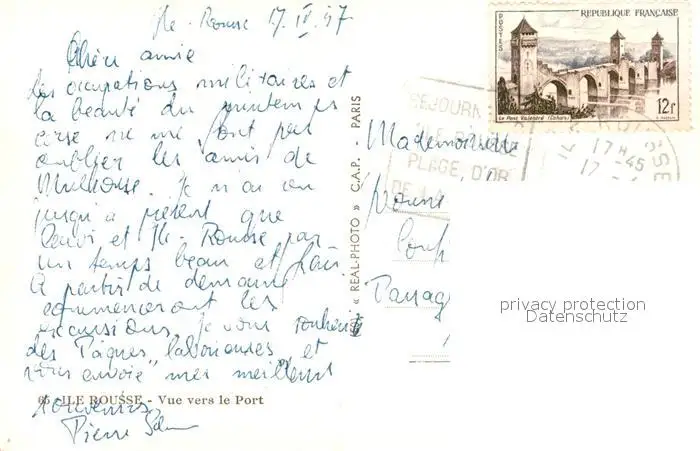 Ile-Rousse 17.IV.57
Chère amie
Les occupations militaires et
la beauté du printemps
corse ne me font pas
oublier les amis de
Mulhouse. Je n'ai vu
jusqu'à présent que
Calvi et Ile-Rousse par
un temps beau et
A partir de demain
commenceront les
excursions. Je vous souhaite
des Pâques "laborieuses" et
vous envoie mes meilleurs
souvenirs.
Pierre
65 - ILE ROUSSE - Vue vers le Port
« REAL-PHOTO » C.A.P. PARIS
POSTES
REPUBLIQUE FRANÇAISE
Le Pont Valentré (Cahors)
12f
SEJOURN
PLAGE D'OR
DE LA
17H45
17
SSE
Mademoiselle
privacy protection
Datenschutz